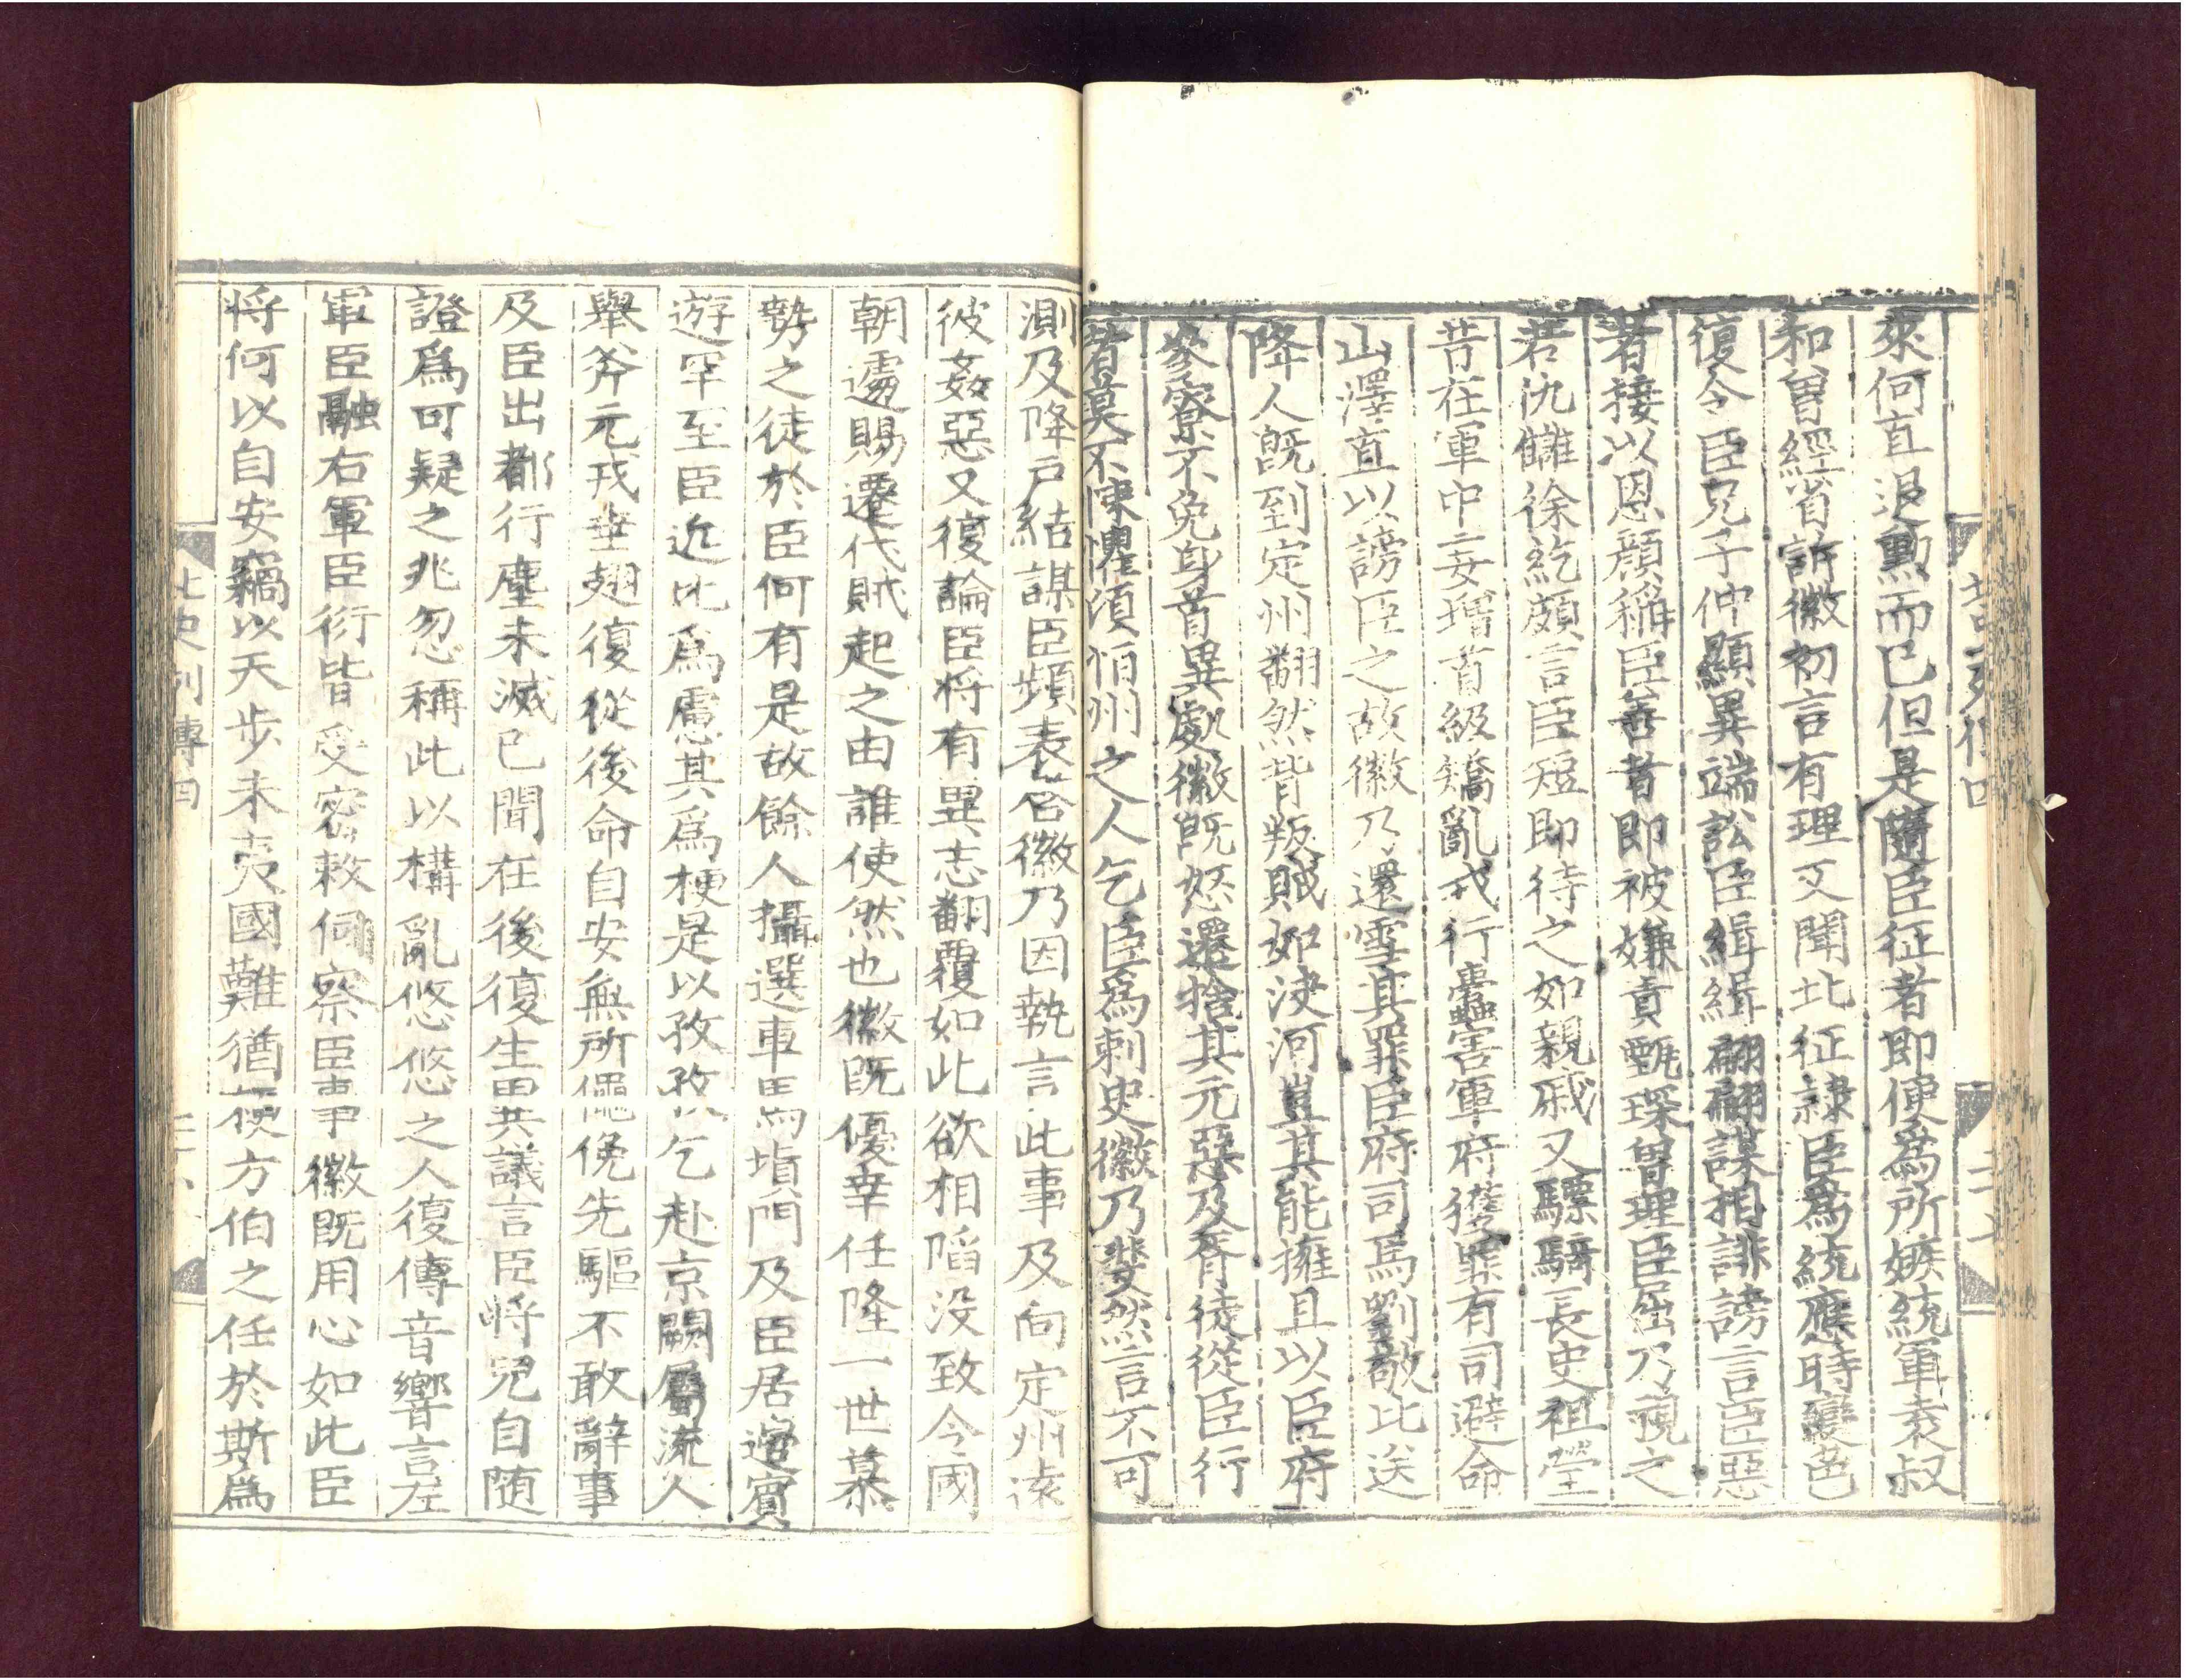 來何直退勲而已但是隨臣征者即便為所嫉統軍袁叔
和曽經省訴徽初言有理又聞北征隷臣為統應時變色
復令臣兄子仲顯異端訟臣緝緝翩翩謀相誹謗言臣惡
者接以恩顔稱臣善者即被嫌責甄琛曽理臣屈乃視之
若仇讎徐紇頗言臣短即待之如親戚又驃騎長史祖瑩
昔在軍中妄增首級矯亂戎行蠹害軍府獲罪有司避命
山澤直以謗臣之故徽乃還雪其罪臣府司馬劉敬比送
降人既到定州翻然背叛賊如決河豈其能擁且以臣府
叅寮不免身首異處徽既怒遷捨其元惡及胥徒從臣行
者莫不悚懼須怕州之人乞臣為刺史徽乃斐然言不可
測及降戸結謀臣頻表啓徽乃因執言此事及向定州遠
彼姦惡又復論臣將有異志翻覆如此欲相陷没致令國
朝遽賜遷代賊起之由誰使然也徽既優幸任隆一世慕
勢之徒於臣何有是故餘人攝選車馬塡門及臣居邊賓
遊罕至臣近比為慮其為梗是以孜孜乞赴京闕屬流人
舉斧元戎垂翅復從後命自安無所僶俛先驅不敢辭事
及臣出都行塵未滅已聞在後復生異議言臣將兒自随
證為可疑之兆忽稱此以構亂悠悠之人復傳音響言左
軍臣融右軍臣衍皆受密敕伺察臣事徽既用心如此臣
将何以自安竊以天步未夷國難猶梗方伯之任於斯為
北史列傳四